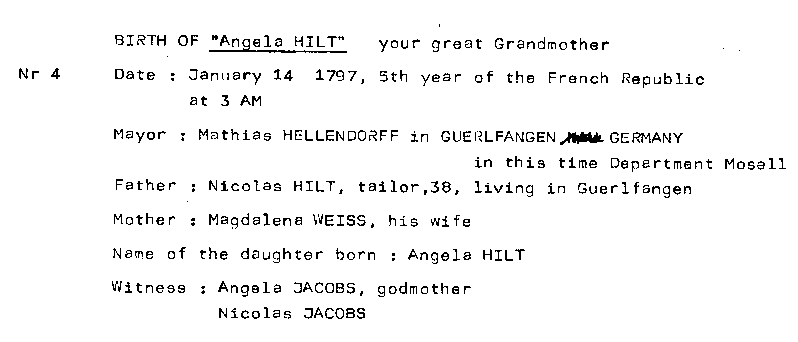 BIRTH OF "Angela HILT" your great Grandmother
Nr 4 Date : January 14 1797, 5th year of the French Republic
at 3 AM
Mayor : Mathias HELLENDORFF in GUERLFANGEN GERMANY
in this time Department Mosell
Father : Nicolas HILT, tailor,38, living in Guerlfangen
Mother : Magdalena WEISS, his wife
Name of the daughter born : Angela HILT
Witness : Angela JACOBS, godmother
Nicolas JACOBS